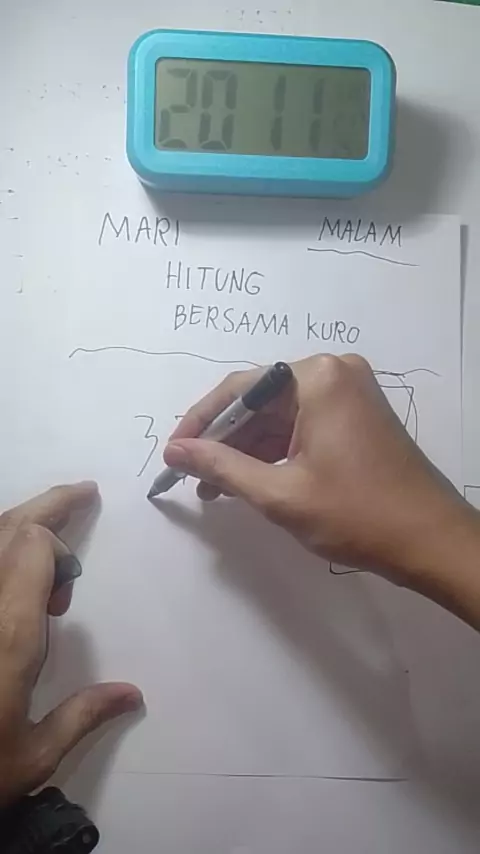 20 11
MARI MALAM
HITUNG
BERSAMA KURO
3